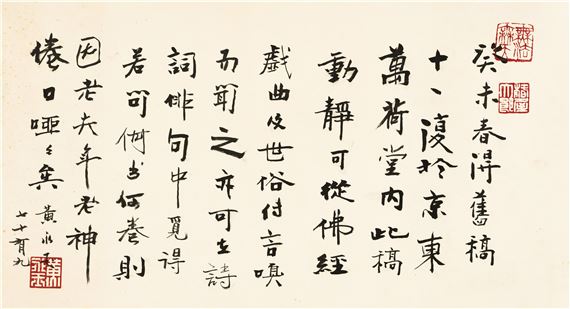 癸未春得舊稿
十一復於京東
萬荷堂內此稿
動靜可從佛經
戲曲及世俗传言嗅
而聞之亦可在詩
詞俳句中覓得
若问出何卷則
因老夫年老神
倦口啞〻矣 黃永玉
七十有九